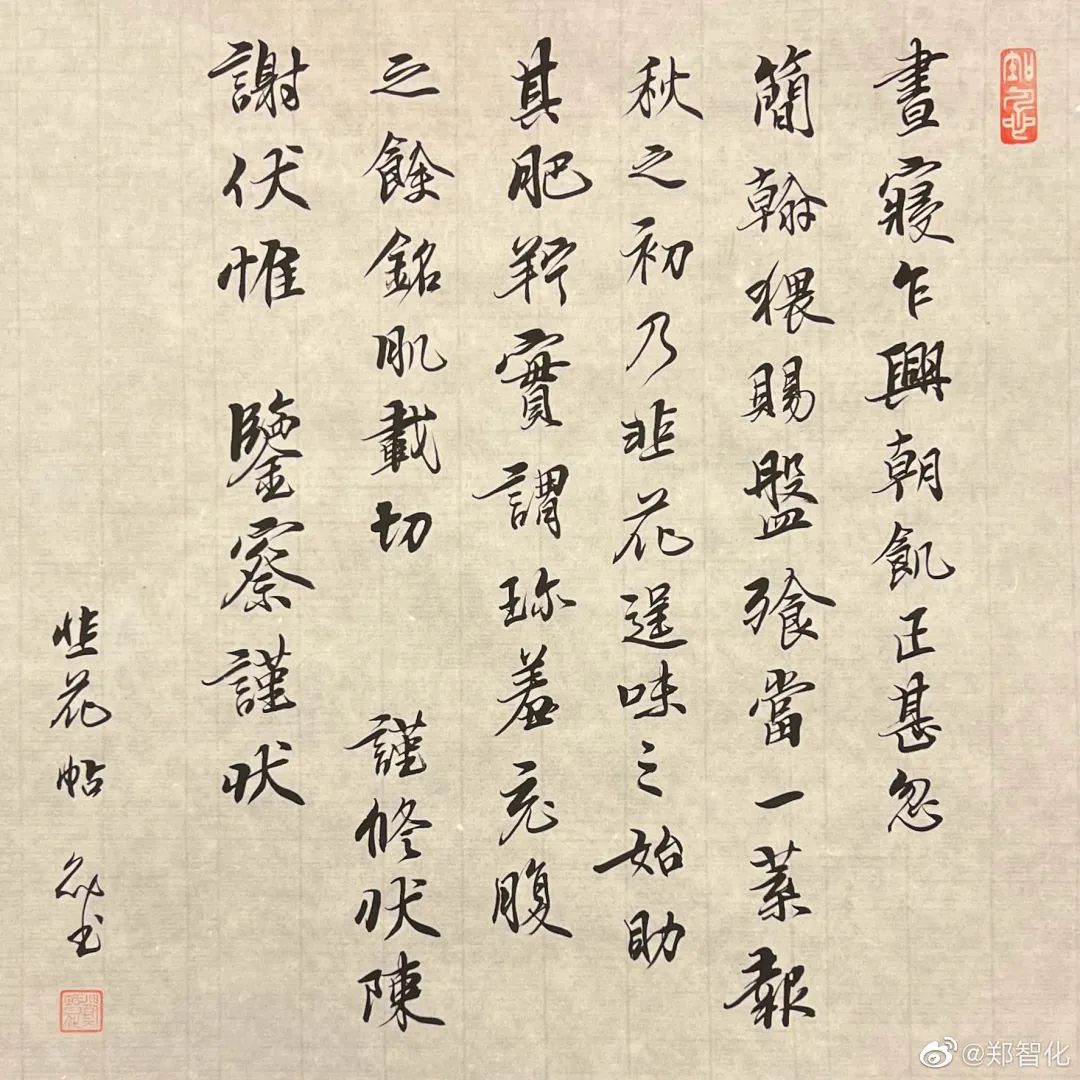 晝寢乍興朝飢正甚忽
簡翰猥賜盤飧當一葉報
秋之初乃韭花逞味之始助
其肥羜實謂珎羞充腹
之餘銘肌載切 謹修狀陳
謝伏惟 鑒察謹狀
韭花帖
@郑智化